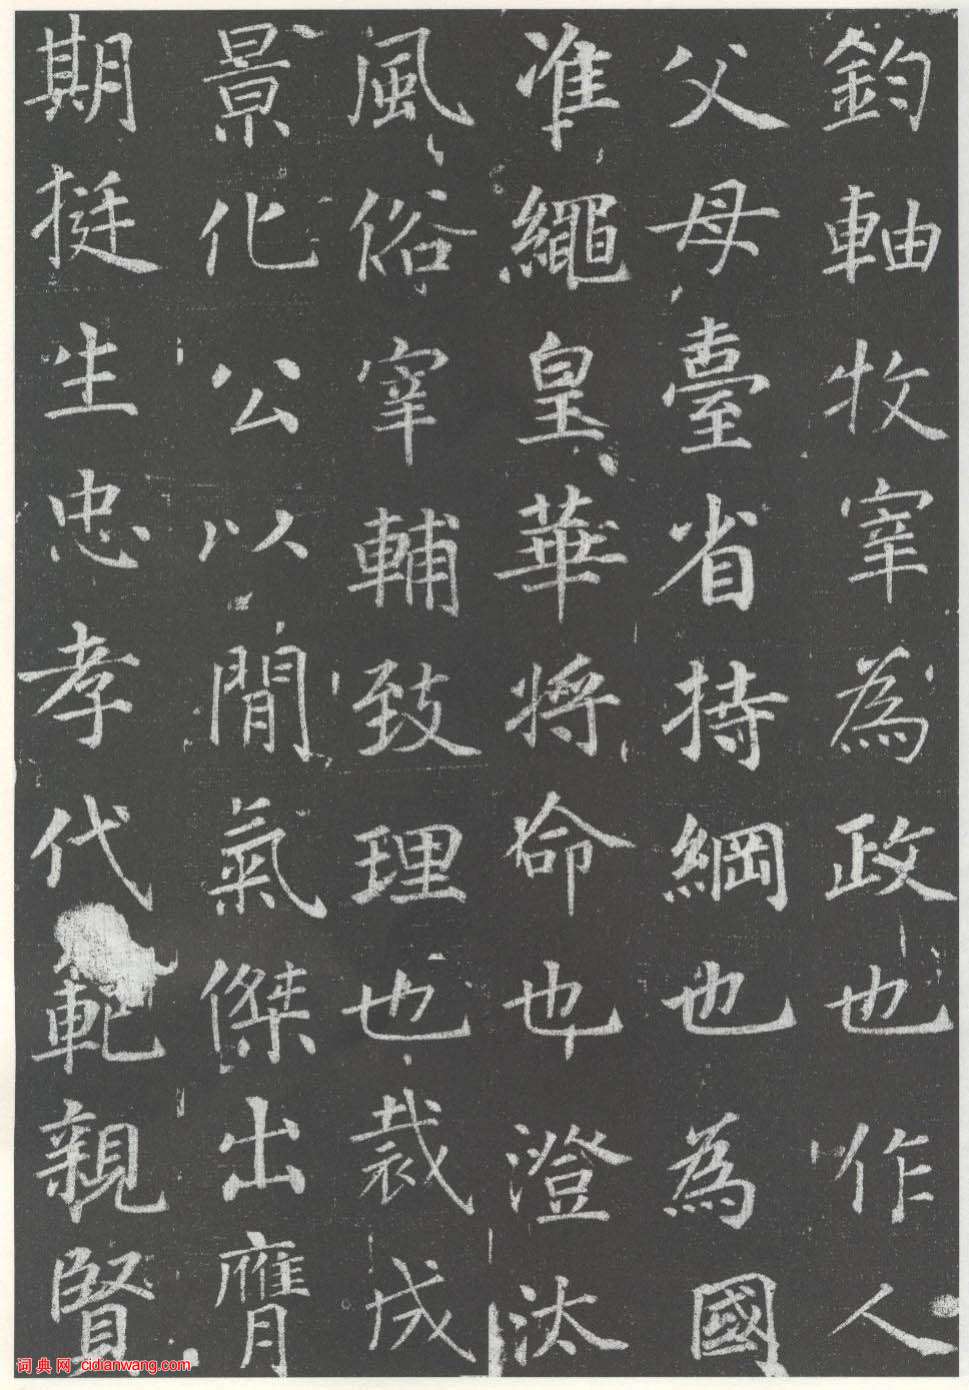 鈞軸牧宰為政也作人
父母臺省持綱也為國
准繩皇華將命也澄汰
風俗宰輔致理也裁成
景化公以間氣傑出膺
期挺生忠孝代範親賢
词典网 cidianwang.com